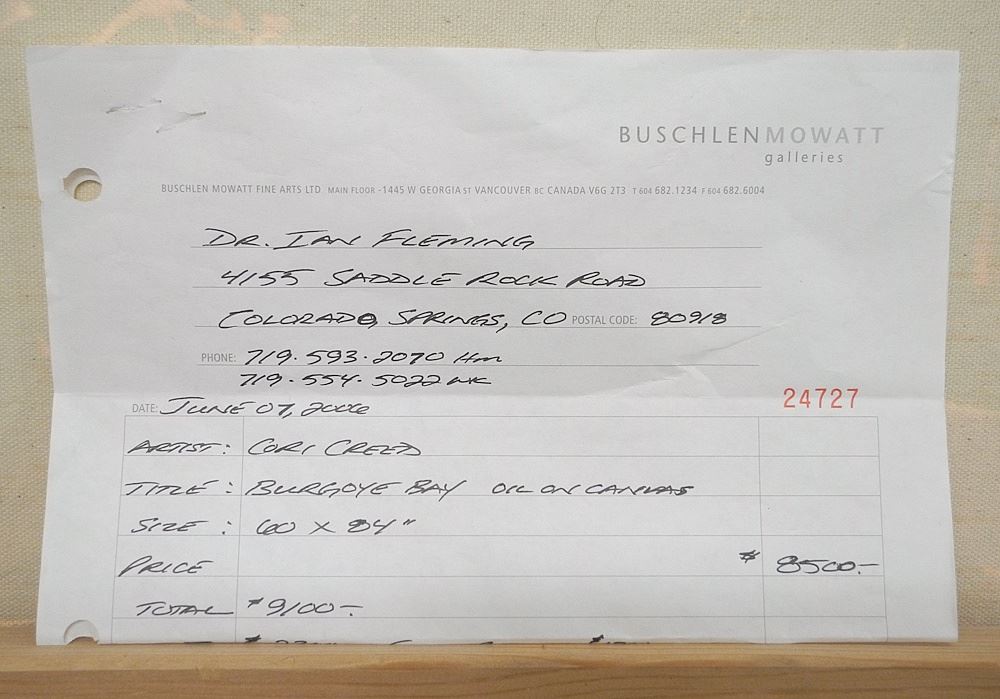 BUSCHLENMOWATT
galleries
BUSCHLEN MOWATT FINE ARTS LTD MAIN FLOOR -1445 W GEORGIA ST VANCOUVER BC CANADA V6G 2T3 T 604 682.1234 F 604 682.6004
DR. IAN FLEMING
4155 SADDLE ROCK ROAD
COLORADO, SPRINGS, CO POSTAL CODE: 80918
PHONE: 719.593.2070 Hm
719.554.5022 WK
24727
DATE: JUNE 07, 2006
ARTIST: CORI CREED
TITLE: BURGOYE BAY OIL ON CANVAS
SIZE: 60 X 84"
PRICE $ 8500.-
TOTAL $9100-